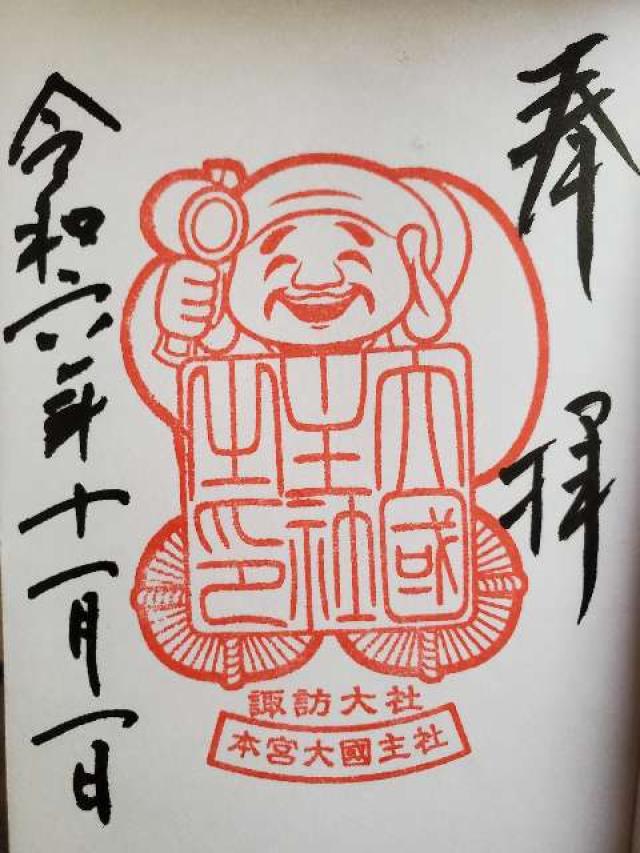 奉拝
大國
主社
之印
諏訪大社
本宮大國主社
令和六年十一月一日